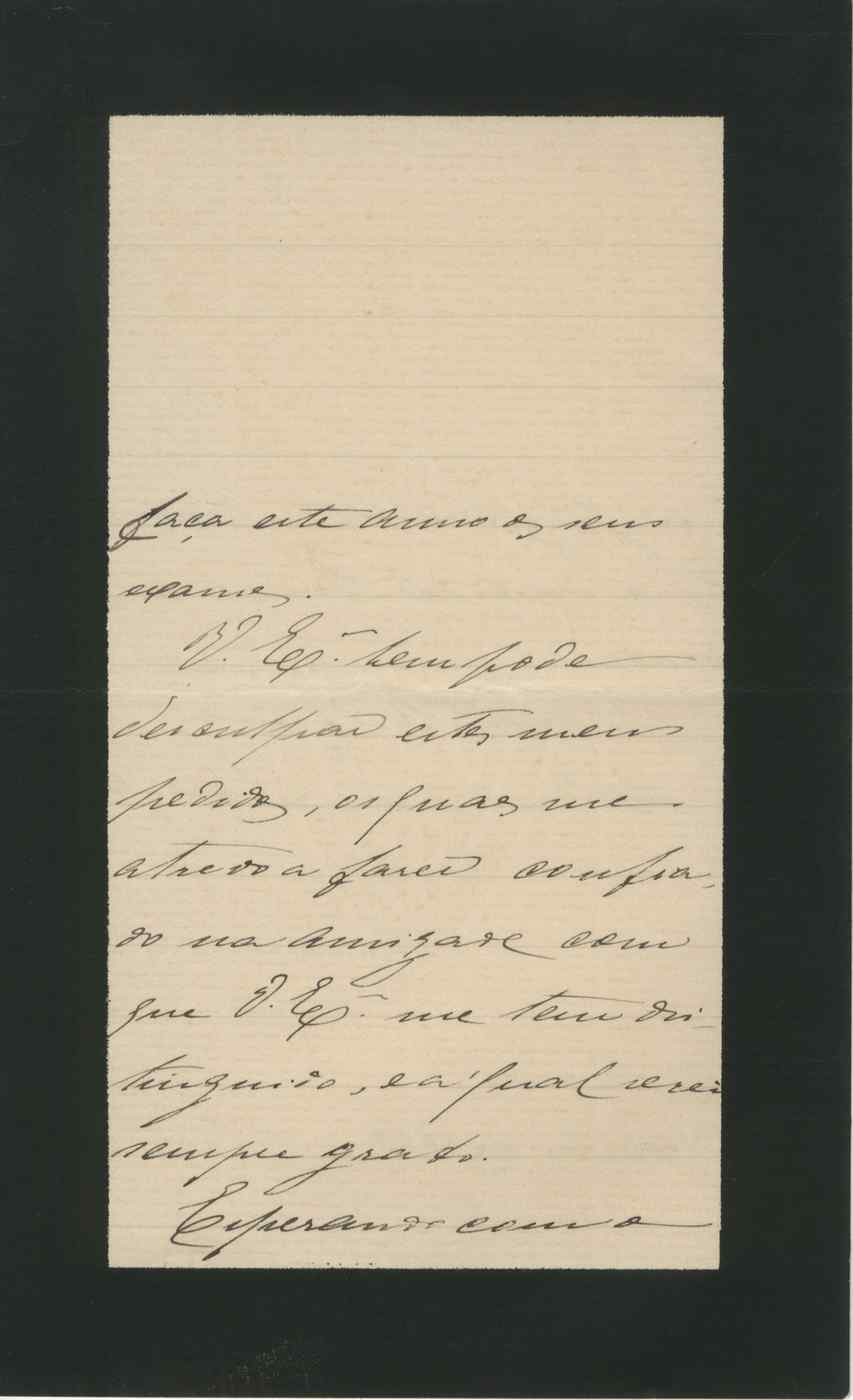 faça este anno os seus
exames.
V. Ex.ª bem pode
desculpar estes meus
pedidos, os quaes me
atrevo a fazer confia-
do na amizade com
que V. Ex.ª me tem dis-
tinguido, e á qual serei
sempre grato.
Esperando com o